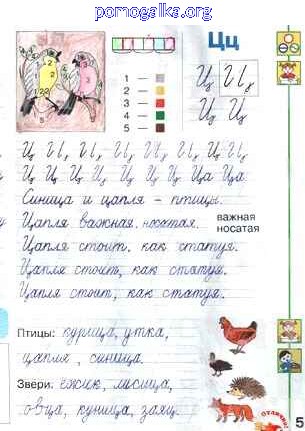 pomogalka.org
Цц
1 —
2 —
3 —
4 —
5 —
Ц Ц
Ц Ц
Ц Ц Ц Ц Ц Ц Ц Ц
Ц Ц Ц Ц Ц Ц Ц Ца Ца
Синица и цапля – птицы.
Цапля важная, носатая.
важная
носатая
Цапля стоит, как статуя.
Цапля стоит, как статуя.
Цапля стоит, как статуя.
Птицы: курица, утка,
цапля, синица.
Звери: ёжик, лисица,
овца, куница, заяц.
Отлично!
5